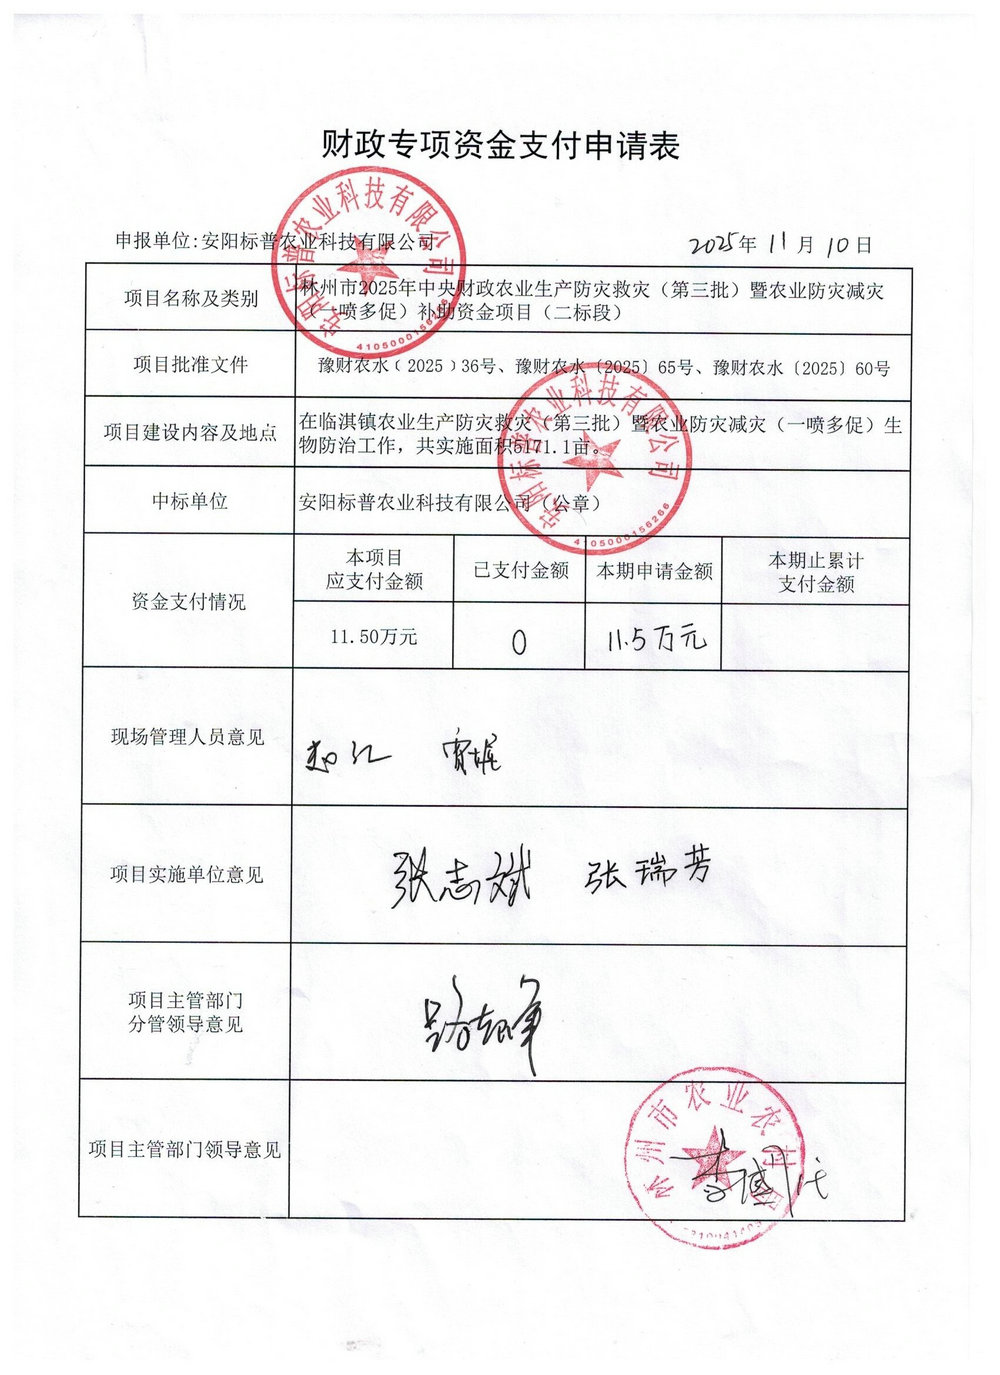 财政专项资金支付申请表
申报单位:安阳标普农业科技有限公司
2025年 11月 10日
项目名称及类别
林州市2025年中央财政农业生产防灾救灾（第三批）暨农业防灾减灾
（一喷多促）补助资金项目（二标段）
项目批准文件
豫财农水﹝2025﹞36号、豫财农水〔2025〕65号、豫财农水〔2025〕60号
项目建设内容及地点
在临淇镇农业生产防灾救灾（第三批）暨农业防灾减灾（一喷多促）生
物防治工作，共实施面积
中标单位
安阳标普农业科技有限公司（公章）
资金支付情况
本项目
应支付金额
已支付金额
本期申请金额
本期止累计
支付金额
11.50万元
0
11.5万元
现场管理人员意见
项目实施单位意见
张志斌 张瑞芳
项目主管部门
分管领导意见
项目主管部门领导意见
安阳标普农业科技有限公司
4105000156266
安阳标普农业科技有限公司
4105000156266
林州市农业农村局